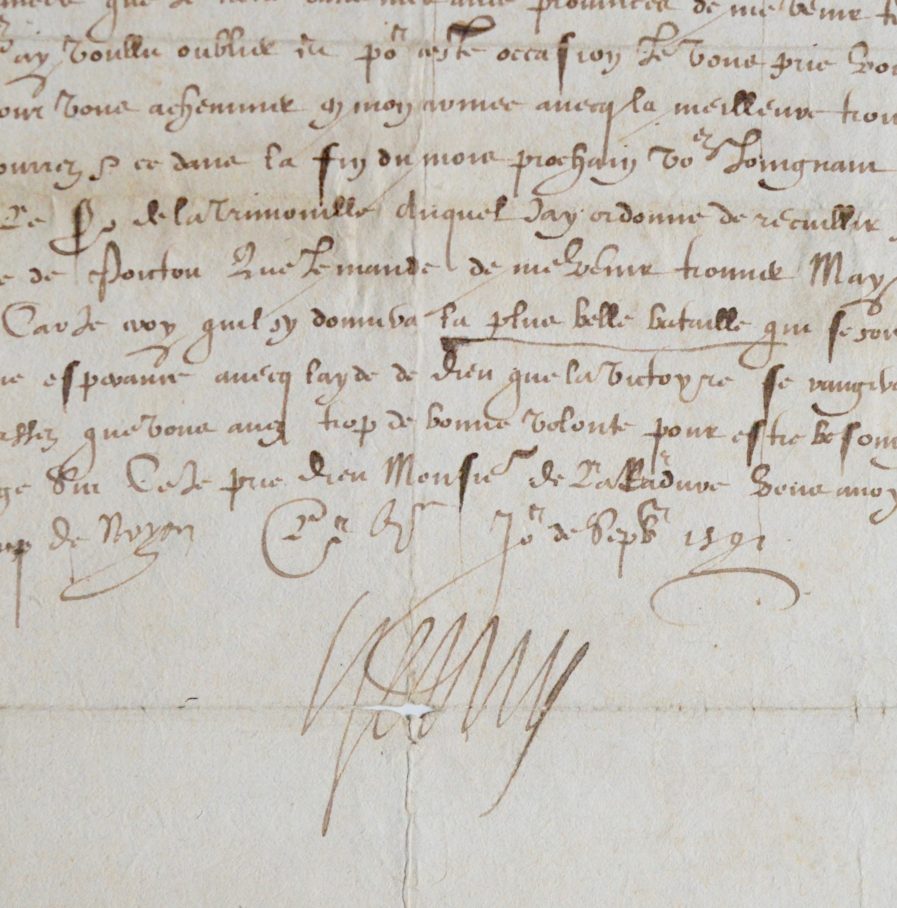 que je provinces de me venir
ay voullu oublier en por ceste occasion Je vous prie
pour vous acheminer en mon armee avecq la meilleure
pourrez ce dans la fin du mois prochain vos Joignant
Le Sr de la Trimouille Auquel Jay ordonne de recuillir
de Poictou Que Je mande de me venir trouver Mays
Car Je croy quil sy donnera la plus belle bataille qui se
esperance avecq layde de Dieu que la victoyre se rangera
assez que vous avez trop de bonne volonte pour estre
Sur Ce Je prie Dieu Monsier de vous avoyr
de Noyon Ce de Sepbr 1591
Henry